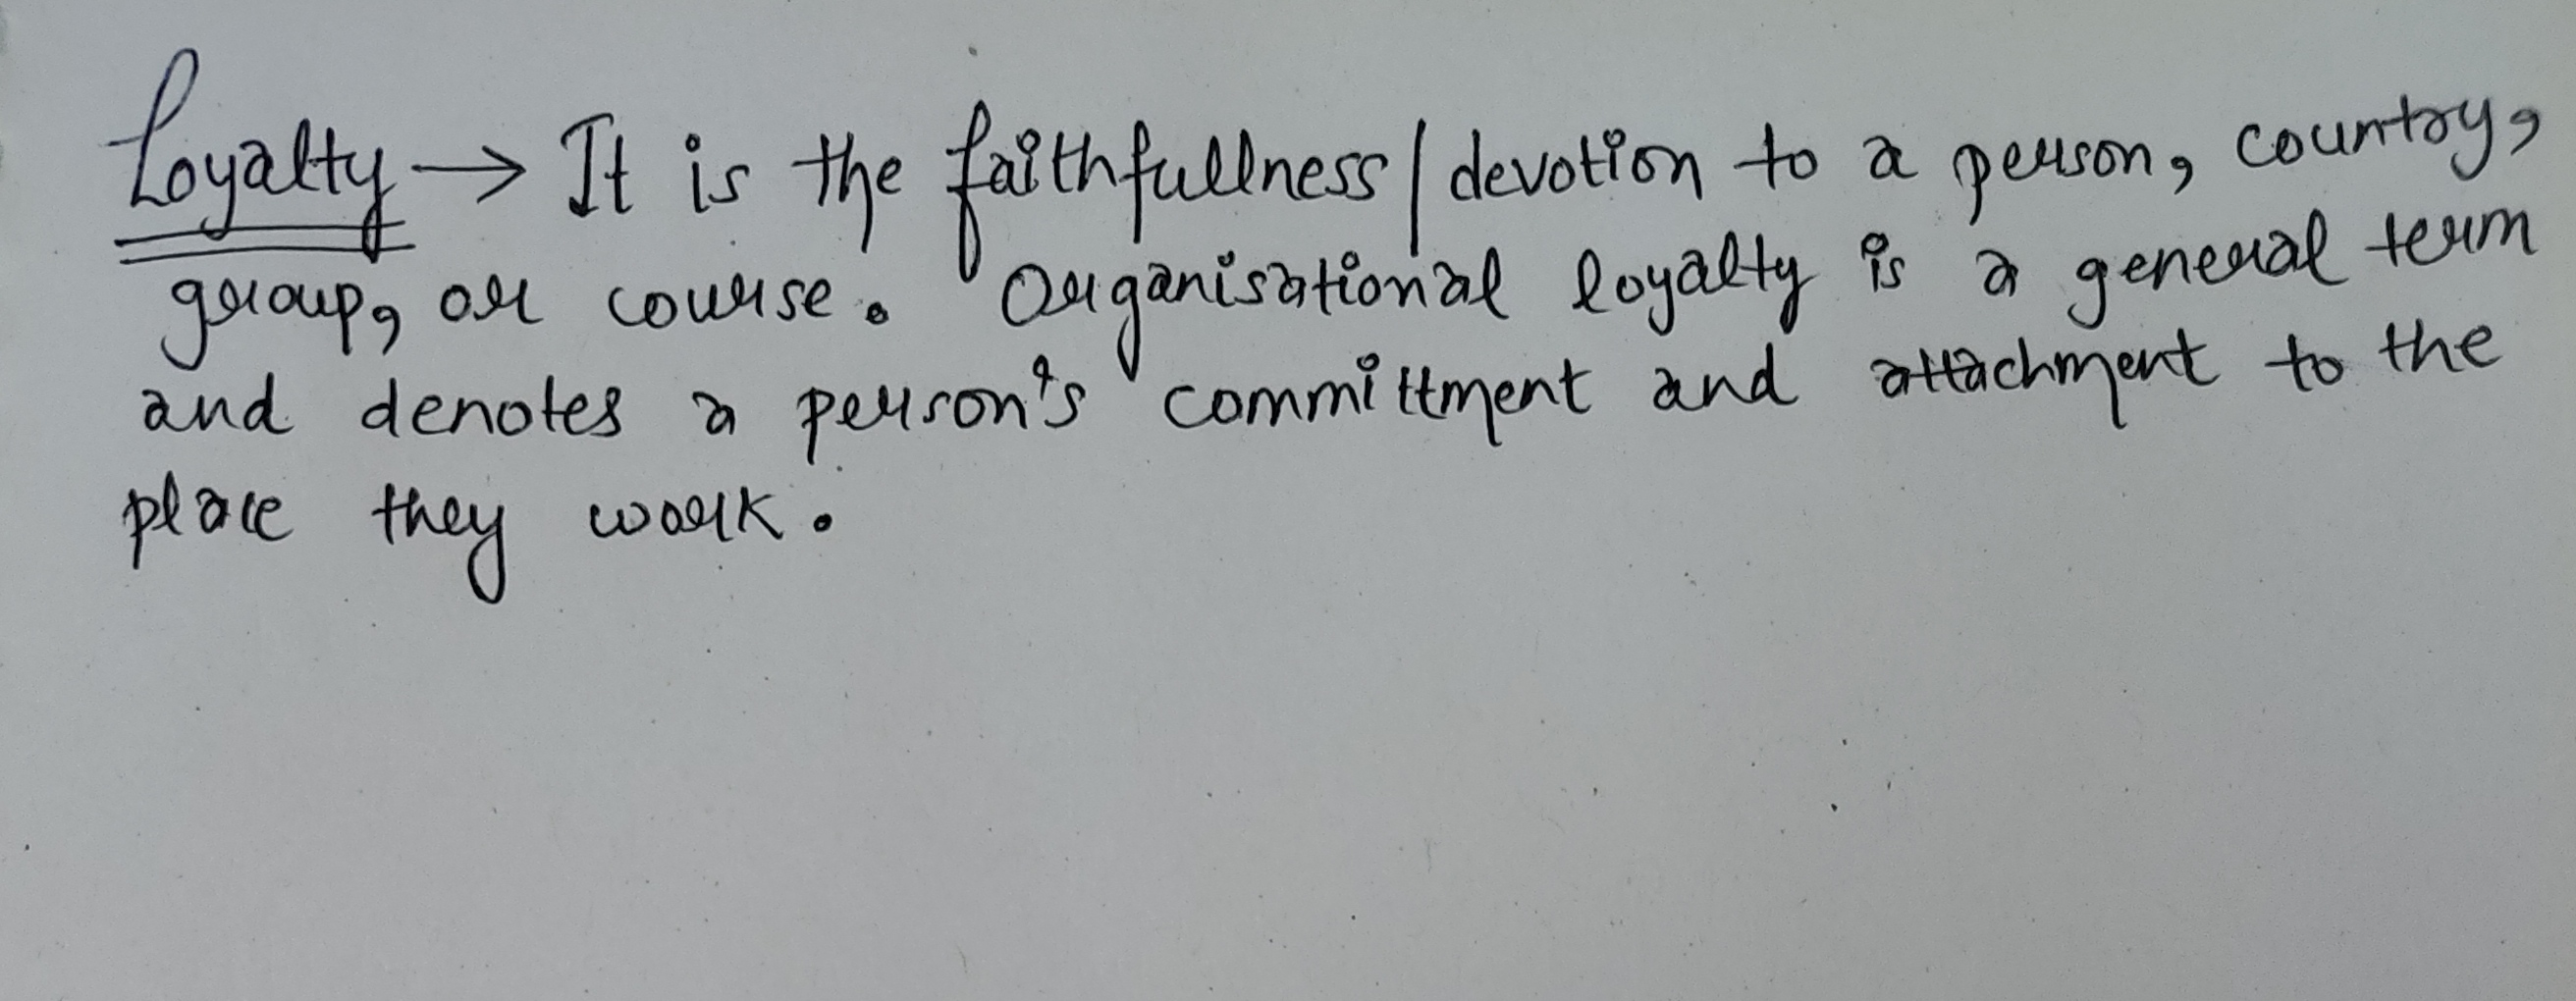 Loyalty → It is the faithfullness/devotion to a person, country,
group, or course. Organisational loyalty is a general term
and denotes a person's committment and attachment to the
place they work.